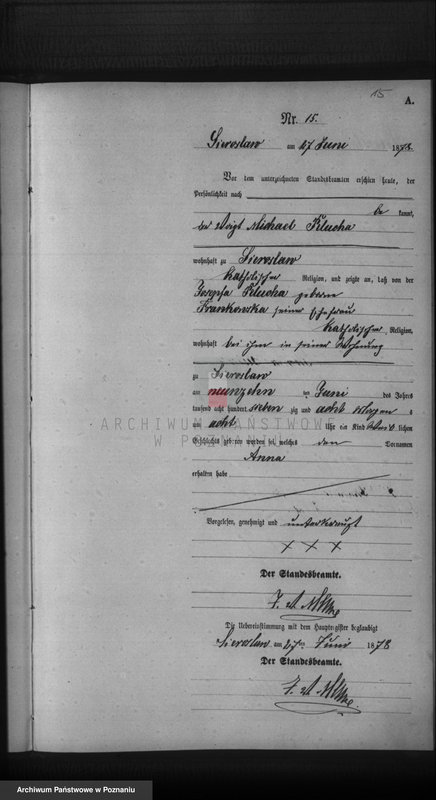 15
A.
Nr. 15.
Sieroslaw am 27 Juni 1878.
Vor dem unterzeichneten Standesbeamten erschien heute, der
Persönlichkeit nach
be kannt,
der Voigt Michael Klucha
wohnhaft zu Sieroslaw
katholischer Religion, und zeigte an, daß von der
Josepha Klucha geborene
Frankowska seiner Ehefrau
katholischer Religion,
wohnhaft bei ihm in seiner Wohnung
zu Sieroslaw
am neunzehn ten Juni des Jahres
tausend acht hundert sieben zig und acht
um acht Uhr ein Kind weib lichen
Geschlechts geboren worden sei, welches den Vornamen
Anna
erhalten habe
Vorgelesen, genehmigt und unterkreuzt
× × ×
Der Standesbeamte.
Die Uebereinstimmung mit dem Hauptregister beglaubigt
Sieroslaw am 27ten Juni 1878
Der Standesbeamte.
ARCHIWUM PAŃSTWOWE
W P
Archiwum Państwowe w Poznaniu